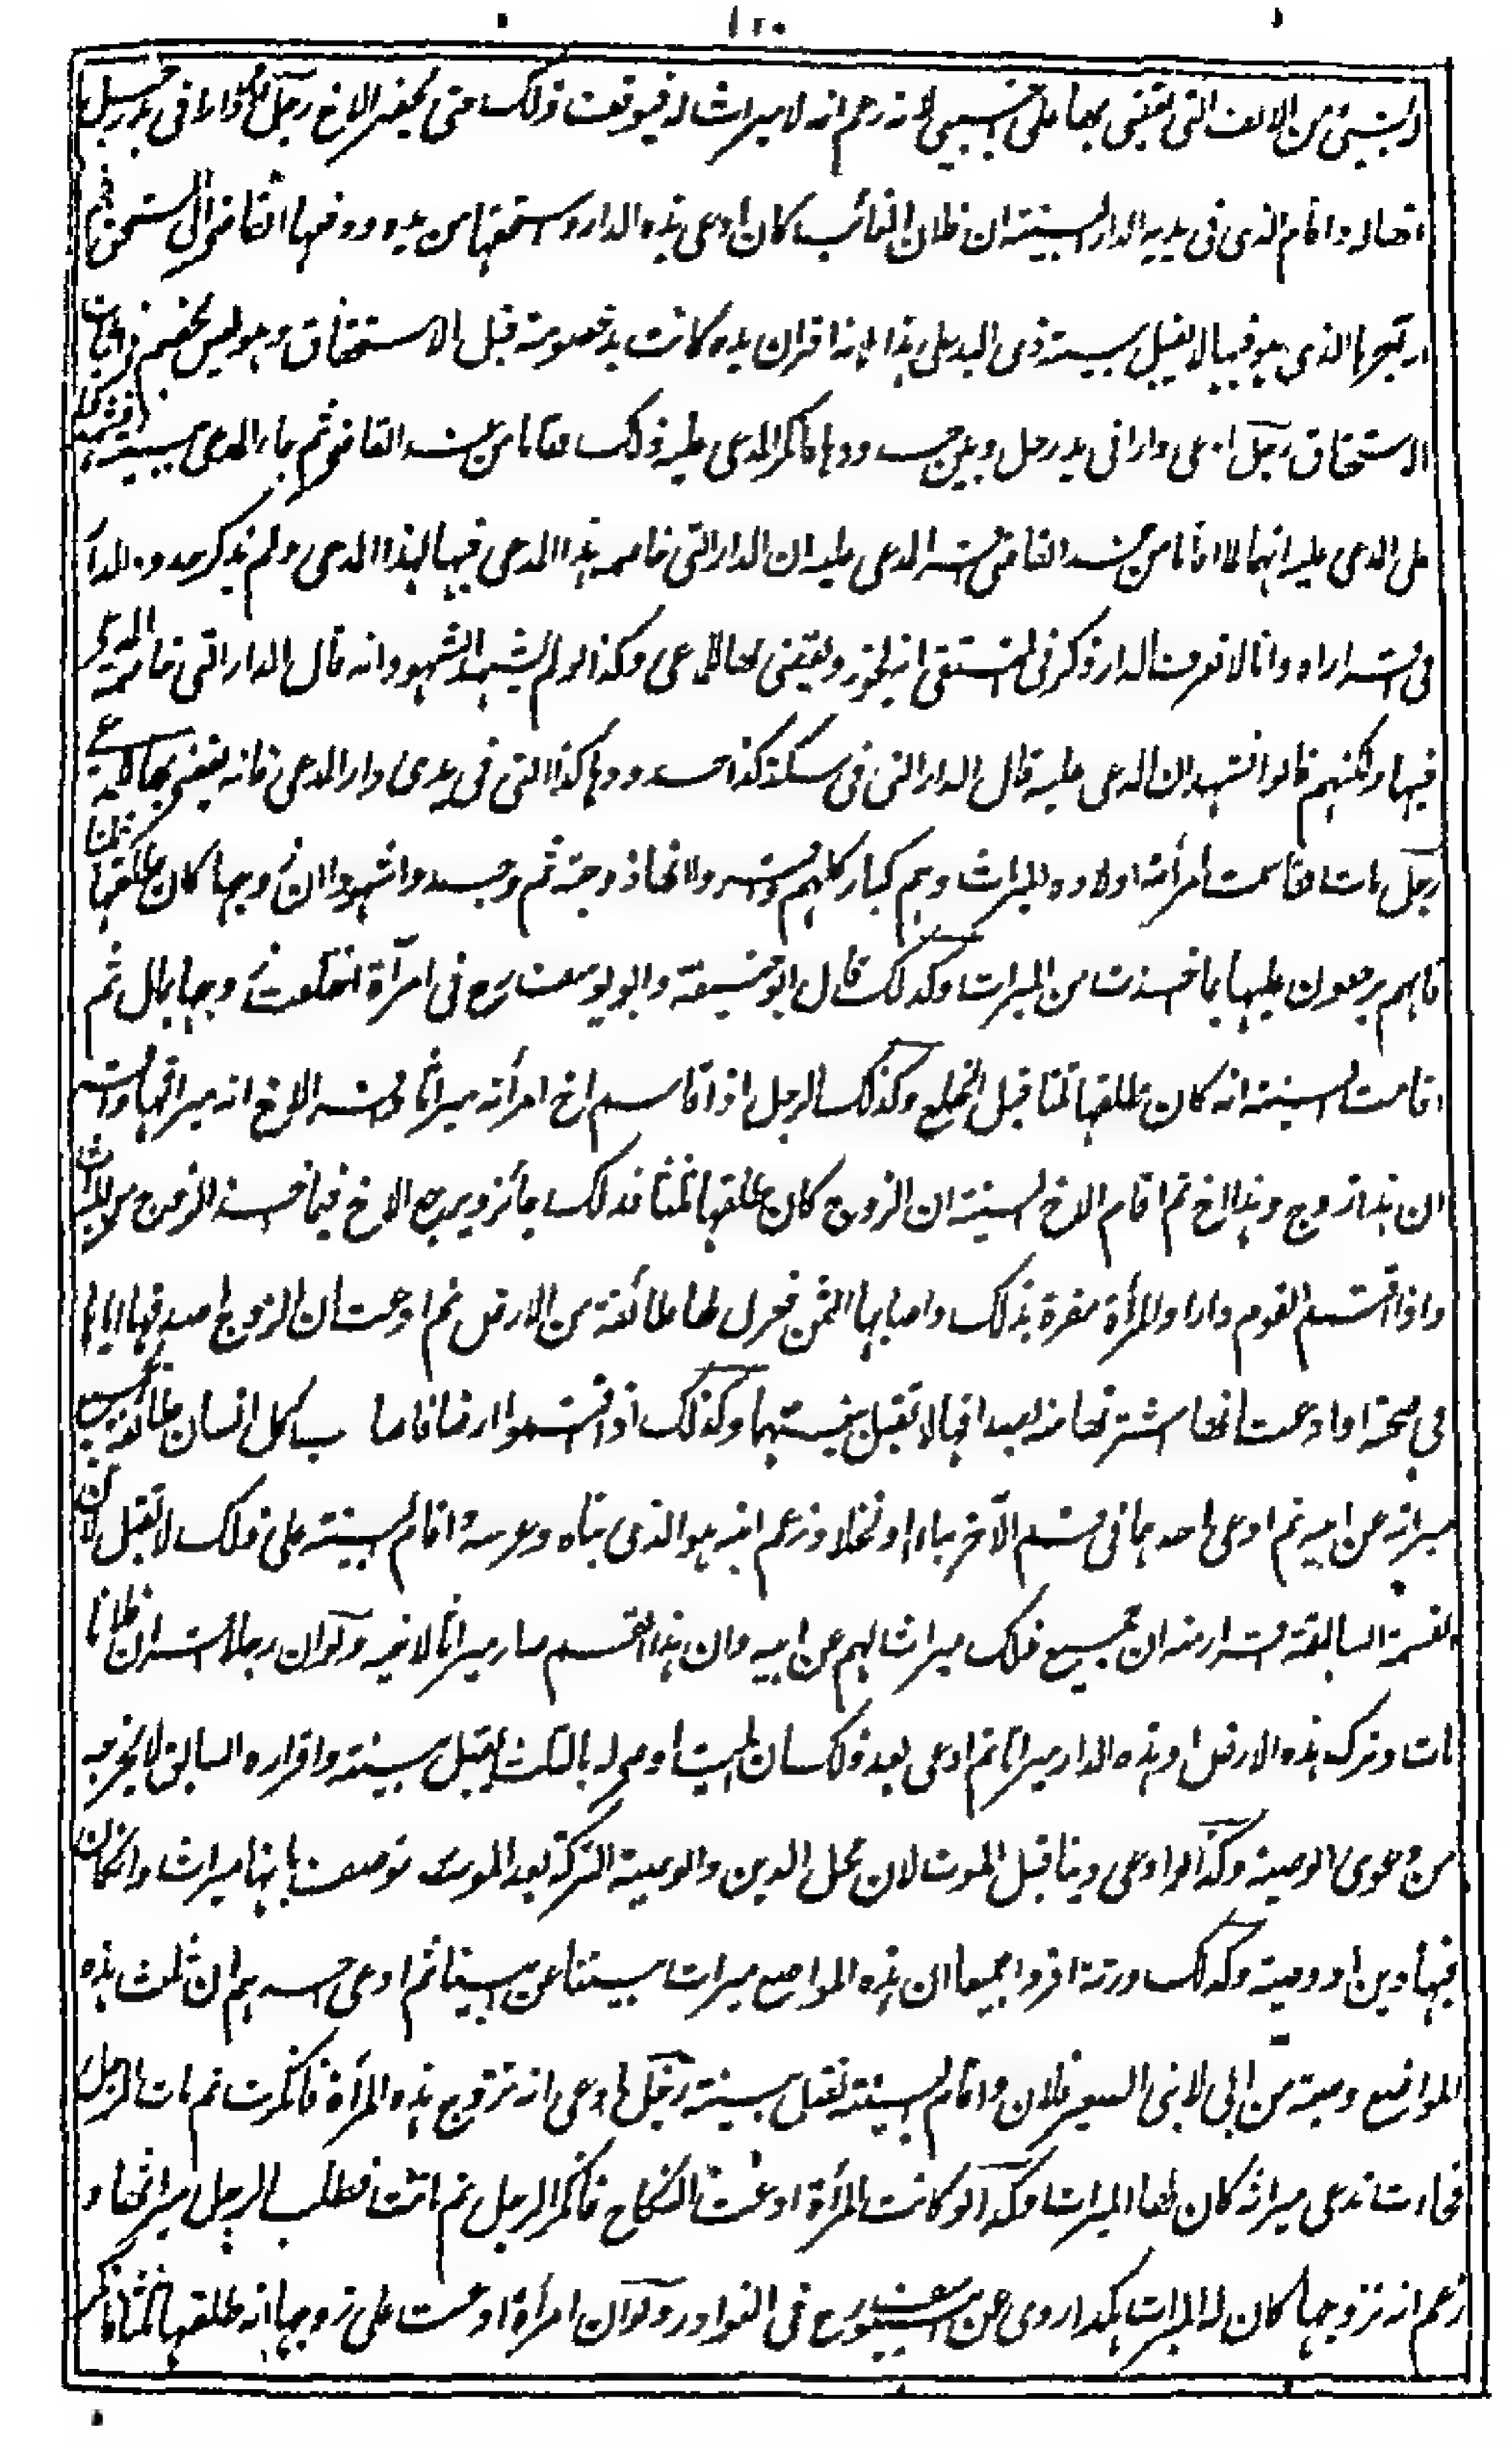 ١٢٠
له بشيء من الالف التي يقضى بها على لانه زعم انه لا ميراث له فيوقف ذلك حتى يحضر الاخ رجل دارا في يد رجل
واقام الذي في يديه الدار البينة ان فلان الغائب كان ادعى هذه الدار واستحقها من يده ودفعها القاضي الى المستحق ثم
الذي هو فيها لا يقبل بينة ذي اليد على هذا لانه اقر ان يده كانت يد خصومة قبل الاستحقاق وهو ليس بخصم
الاستحقاق رجل ادعى دارا في يد رجل وبين حدودها فانكر المدعى عليه ذلك فقاما من عند القاضي ثم جاء المدعي ببينة
على المدعى عليه انهما لما قاما من عند القاضي اقر المدعى عليه ان الدار التي خاصمه هذا المدعي فيها لهذا المدعي ولم يذكر حدود الدار
في اقراره وانا لا نعرف الدار ذكر في المنتقى انه يجوز ويقضى بها للمدعي وكذا لو لم يشهد الشهود انه قال الدار التي خاصمه المدعي
فيها ولكنهم قالوا نشهد ان المدعى عليه قال الدار التي في سكة كذا حدودها كذا التي في يدي دار المدعي فانه يقضى بها
رجل مات فقاسمت امرأته اولاده الميراث وهم كبار كلهم واقروا انها زوجته ثم وجدوا شهودا ان زوجها كان طلقها ثلثا
فانهم يرجعون عليها بما اخذت من الميراث وكذلك قال ابو حنيفة وابو يوسف رح في امرأة اختلعت من زوجها بمال ثم
اقامت البينة انه كان طلقها ثلثا قبل الخلع وكذلك الرجل اذا قاسم اخ امرأته ميراثا واقر الاخ انه ميراثها واقر
ان هذا زوج وهذا اخ ثم اقام الاخ البينة ان الزوج كان طلقها ثلثا فذلك جائز ويرجع الاخ فيما اخذ الزوج من الميراث
واذا اقتسم القوم دارا والمرأة مقرة بذلك واصابها الثمن فعزل لها طائفة من الارض ثم ادعت ان الزوج اصدقها اياها
في صحته او ادعت انها اشترتها منه بصداقها لا تقبل بينتها وكذلك اذا اقتسموا ارضا فاصاب كل انسان طائفة
ميراثه عن ابيه ثم ادعى احدهما في قسم الآخر بناء او نخلا وزعم انه هو الذي بناه وغرسه واقام البينة على ذلك لا تقبل لان
القسمة السابقة اقرار منه ان جميع ذلك ميراث لهم عن ابيه وان هذا القسم صار ميراثا لاخيه ولو ان رجلا اقر ان فلانا
مات وترك هذه الارض او هذه الدار ميراثا ثم ادعى بعد ذلك ان الميت اوصى له بالثلث يقبل بينته واقراره السابق لا يخرجه
من دعوى الوصية وكذا لو ادعى دينا قبل الموت لان محل الدين والوصية التركة بعد الموت توصف بانها ميراث وان كان
فيها دين او وصية وكذلك ورثة اقروا جميعا ان هذه المواضع ميراث بيننا عن ابينا ثم ادعى احدهم ان ثلث هذه
المواضع وصية من ابي لابني الصغير فلان واقام البينة تقبل بينته رجل ادعى انه تزوج هذه المرأة فانكرت ثم مات الرجل
فجاءت تدعي ميراثه كان لها الميراث وكذا لو كانت المرأة ادعت النكاح فانكر الرجل ثم ماتت فطلب الرجل ميراثها و
زعم انه تزوجها كان له الميراث هكذا روي عن ابي يوسف رح في النوادر ولو ان امرأة ادعت على زوجها انه طلقها ثلثا فانكر